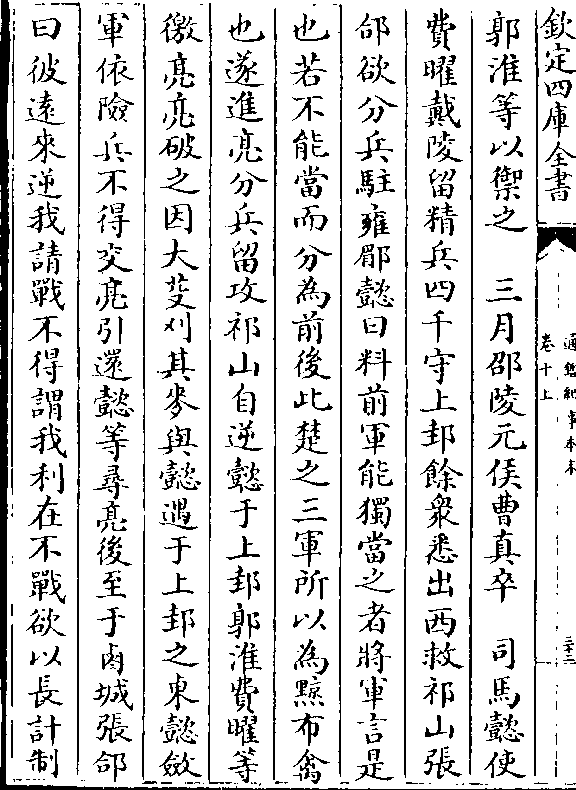 欽定四庫全書
通鑑紀事本末
卷十上
三十二
郭淮等以禦之　三月邵陵元侯曹真卒　司馬懿使
費曜戴陵留精兵四千守上邽餘衆悉出西救祁山張
郃欲分兵駐雍郿懿曰料前軍能獨當之者將軍言是
也若不能當而分為前後此楚之三軍所以為黥布禽
也遂進亮分兵留攻祁山自逆懿于上邽郭淮費曜等
徼亮亮破之因大芟刈其麥與懿遇于上邽之東懿斂
軍依險兵不得交亮引還懿等尋亮後至于鹵城張郃
曰彼遠來逆我請戰不得謂我利在不戰欲以長計制